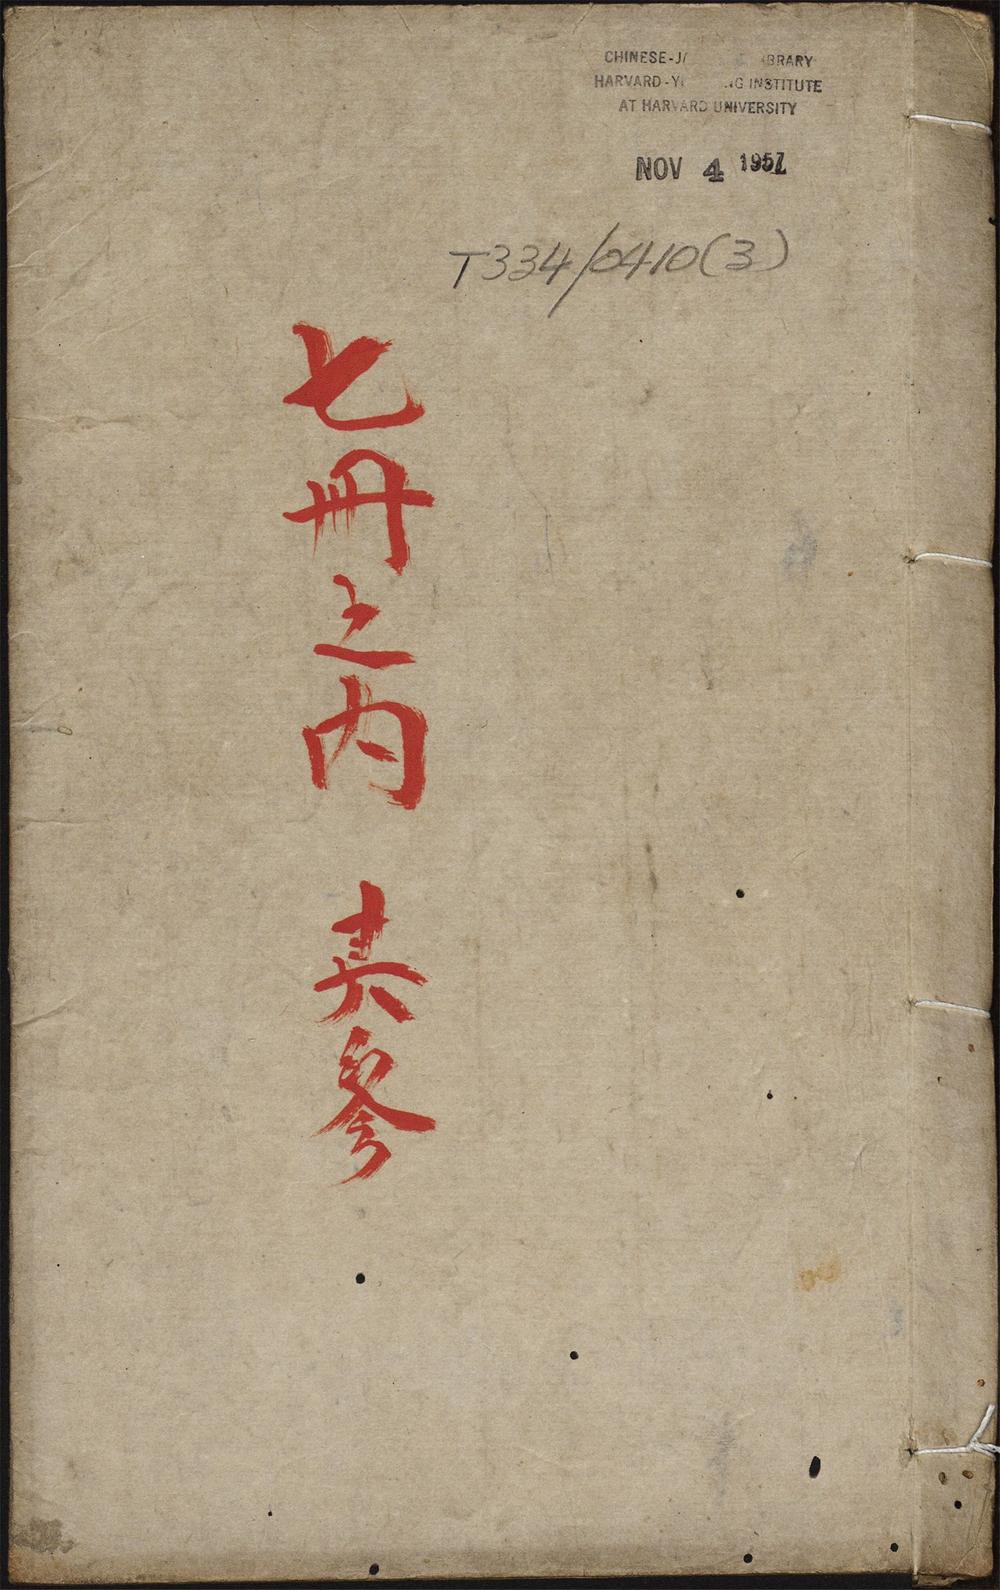 CHINESE-J BRARY
HARVARD-Y G INSTITUTE
AT HARVARD UNIVERSITY
NOV 4 1957
T334/0410(3)
七冊之内 其參